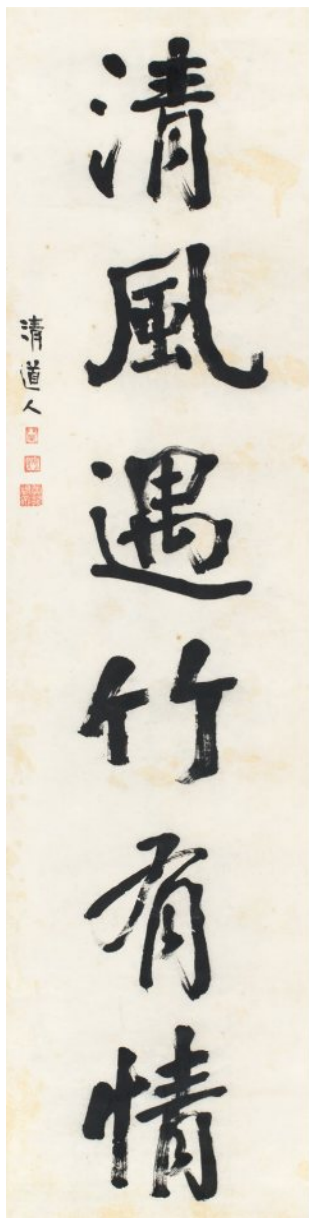 清風遇竹有情
清道人